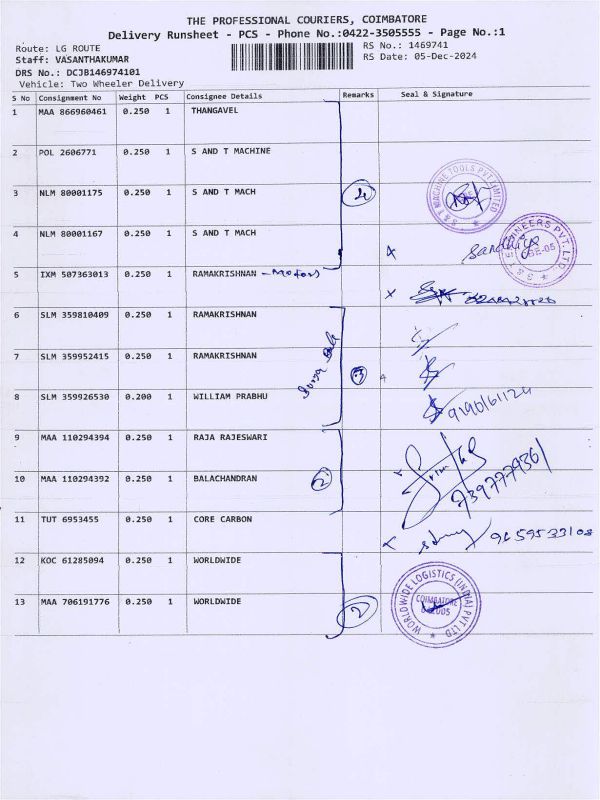 THE PROFESSIONAL COURIERS, COIMBATORE
Delivery Runsheet - PCS - Phone No.:0422-3505555 - Page No.:1
Route: LG ROUTE
RS No.: 1469741
Staff: VASANTHAKUMAR
RS Date: 05-Dec-2024
DRS No.: DCJB146974101
Vehicle: Two Wheeler Delivery
S No Consignment No Weight PCS Consignee Details Remarks Seal & Signature
1 MAA 866960461 0.250 1 THANGAVEL
2 POL 2606771 0.250 1 S AND T MACHINE
3 NLM 80001175 0.250 1 S AND T MACH 4
S & T MACHINE TOOLS PVT LIMITED
4 NLM 80001167 0.250 1 S AND T MACH
Sandhiya
S & T ENGINEERS PVT. LTD. CBE-05
5 IXM 507363013 0.250 1 RAMAKRISHNAN - Motors
6 SLM 359810409 0.250 1 RAMAKRISHNAN
7 SLM 359952415 0.250 1 RAMAKRISHNAN 3
8 SLM 359926530 0.200 1 WILLIAM PRABHU
9 MAA 110294394 0.250 1 RAJA RAJESWARI
10 MAA 110294392 0.250 1 BALACHANDRAN 2
11 TUT 6953455 0.250 1 CORE CARBON
9659533108
12 KOC 61285094 0.250 1 WORLDWIDE
13 MAA 706191776 0.250 1 WORLDWIDE 2
WORLDWIDE LOGISTICS (INDIA) PVT LTD
COIMBATORE